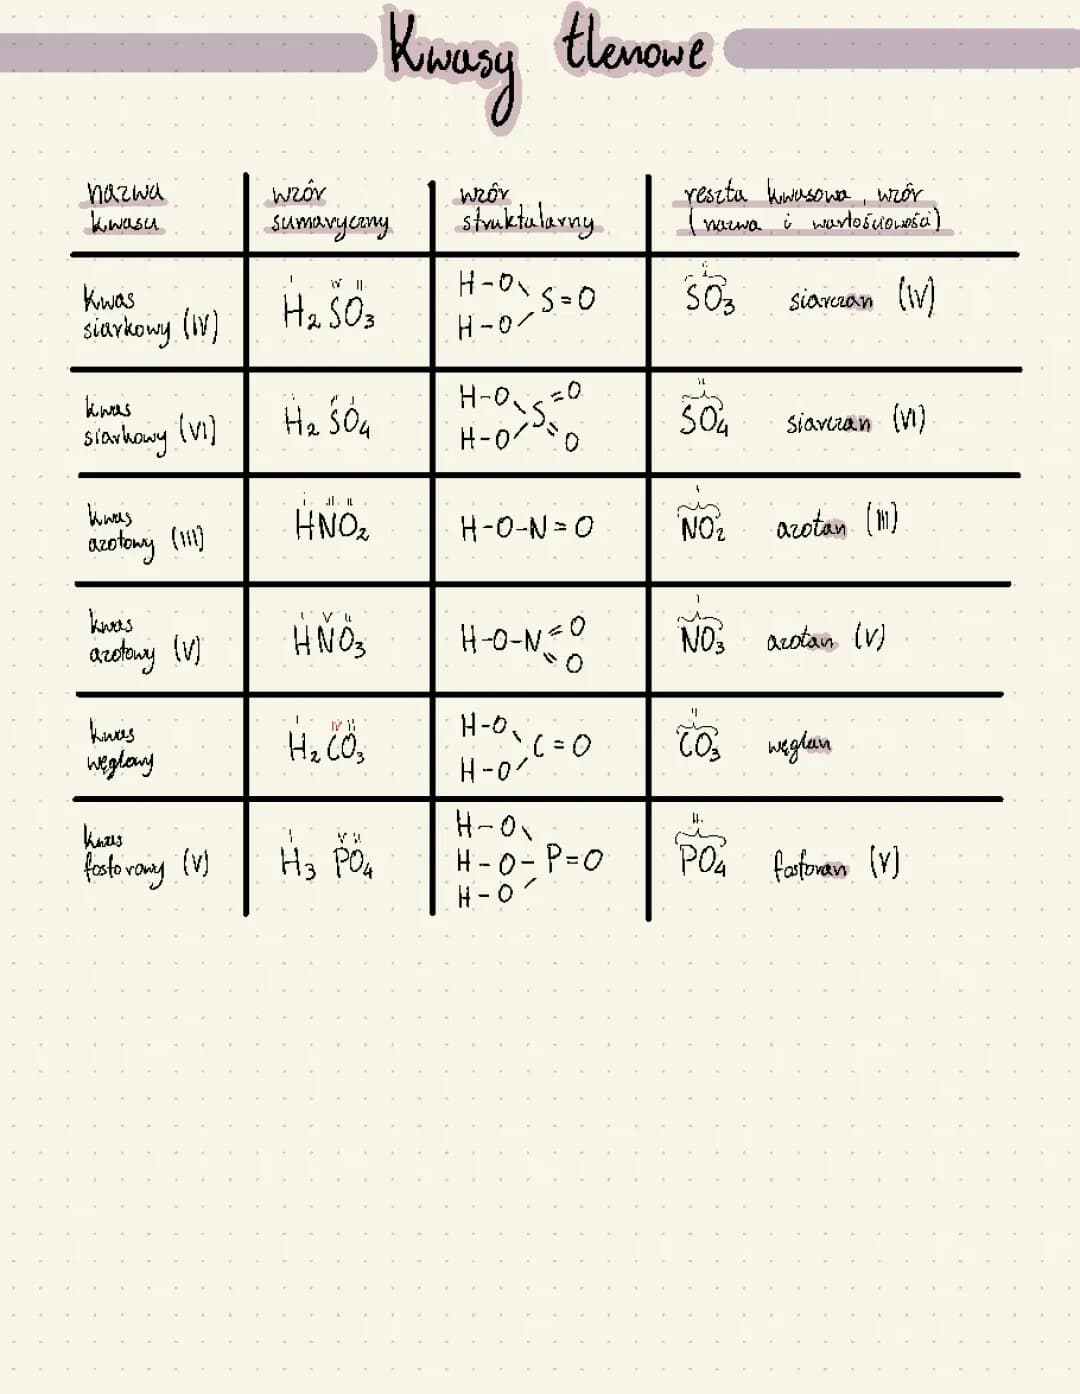 Kwasy tlenowe
nazwa kwasu
wzór sumaryczny
wzór struktularny
reszta kwasowa, wzór
(nazwa i wartościowość)
Kwas siarkowy (IV)
H₂SO₃
H-O\
S=O
H-O/
SO₃ siarczan (IV)
kwas siarkowy (VI)
H₂SO₄
H-O\ =O
S
H-O/ =O
SO₄ siarczan (VI)
kwas azotowy (III)
HNO₂
H-O-N=O
NO₂ azotan (III)
kwas azotowy (V)
HNO₃
H-O-N=O
=O
NO₃ azotan (V)
kwas węglowy
H₂CO₃
H-O\
C=O
H-O/
CO₃ węglan
kwas fosforowy (V)
H₃PO₄
H-O\
H-O-P=O
H-O/
PO₄ fosforan (V)